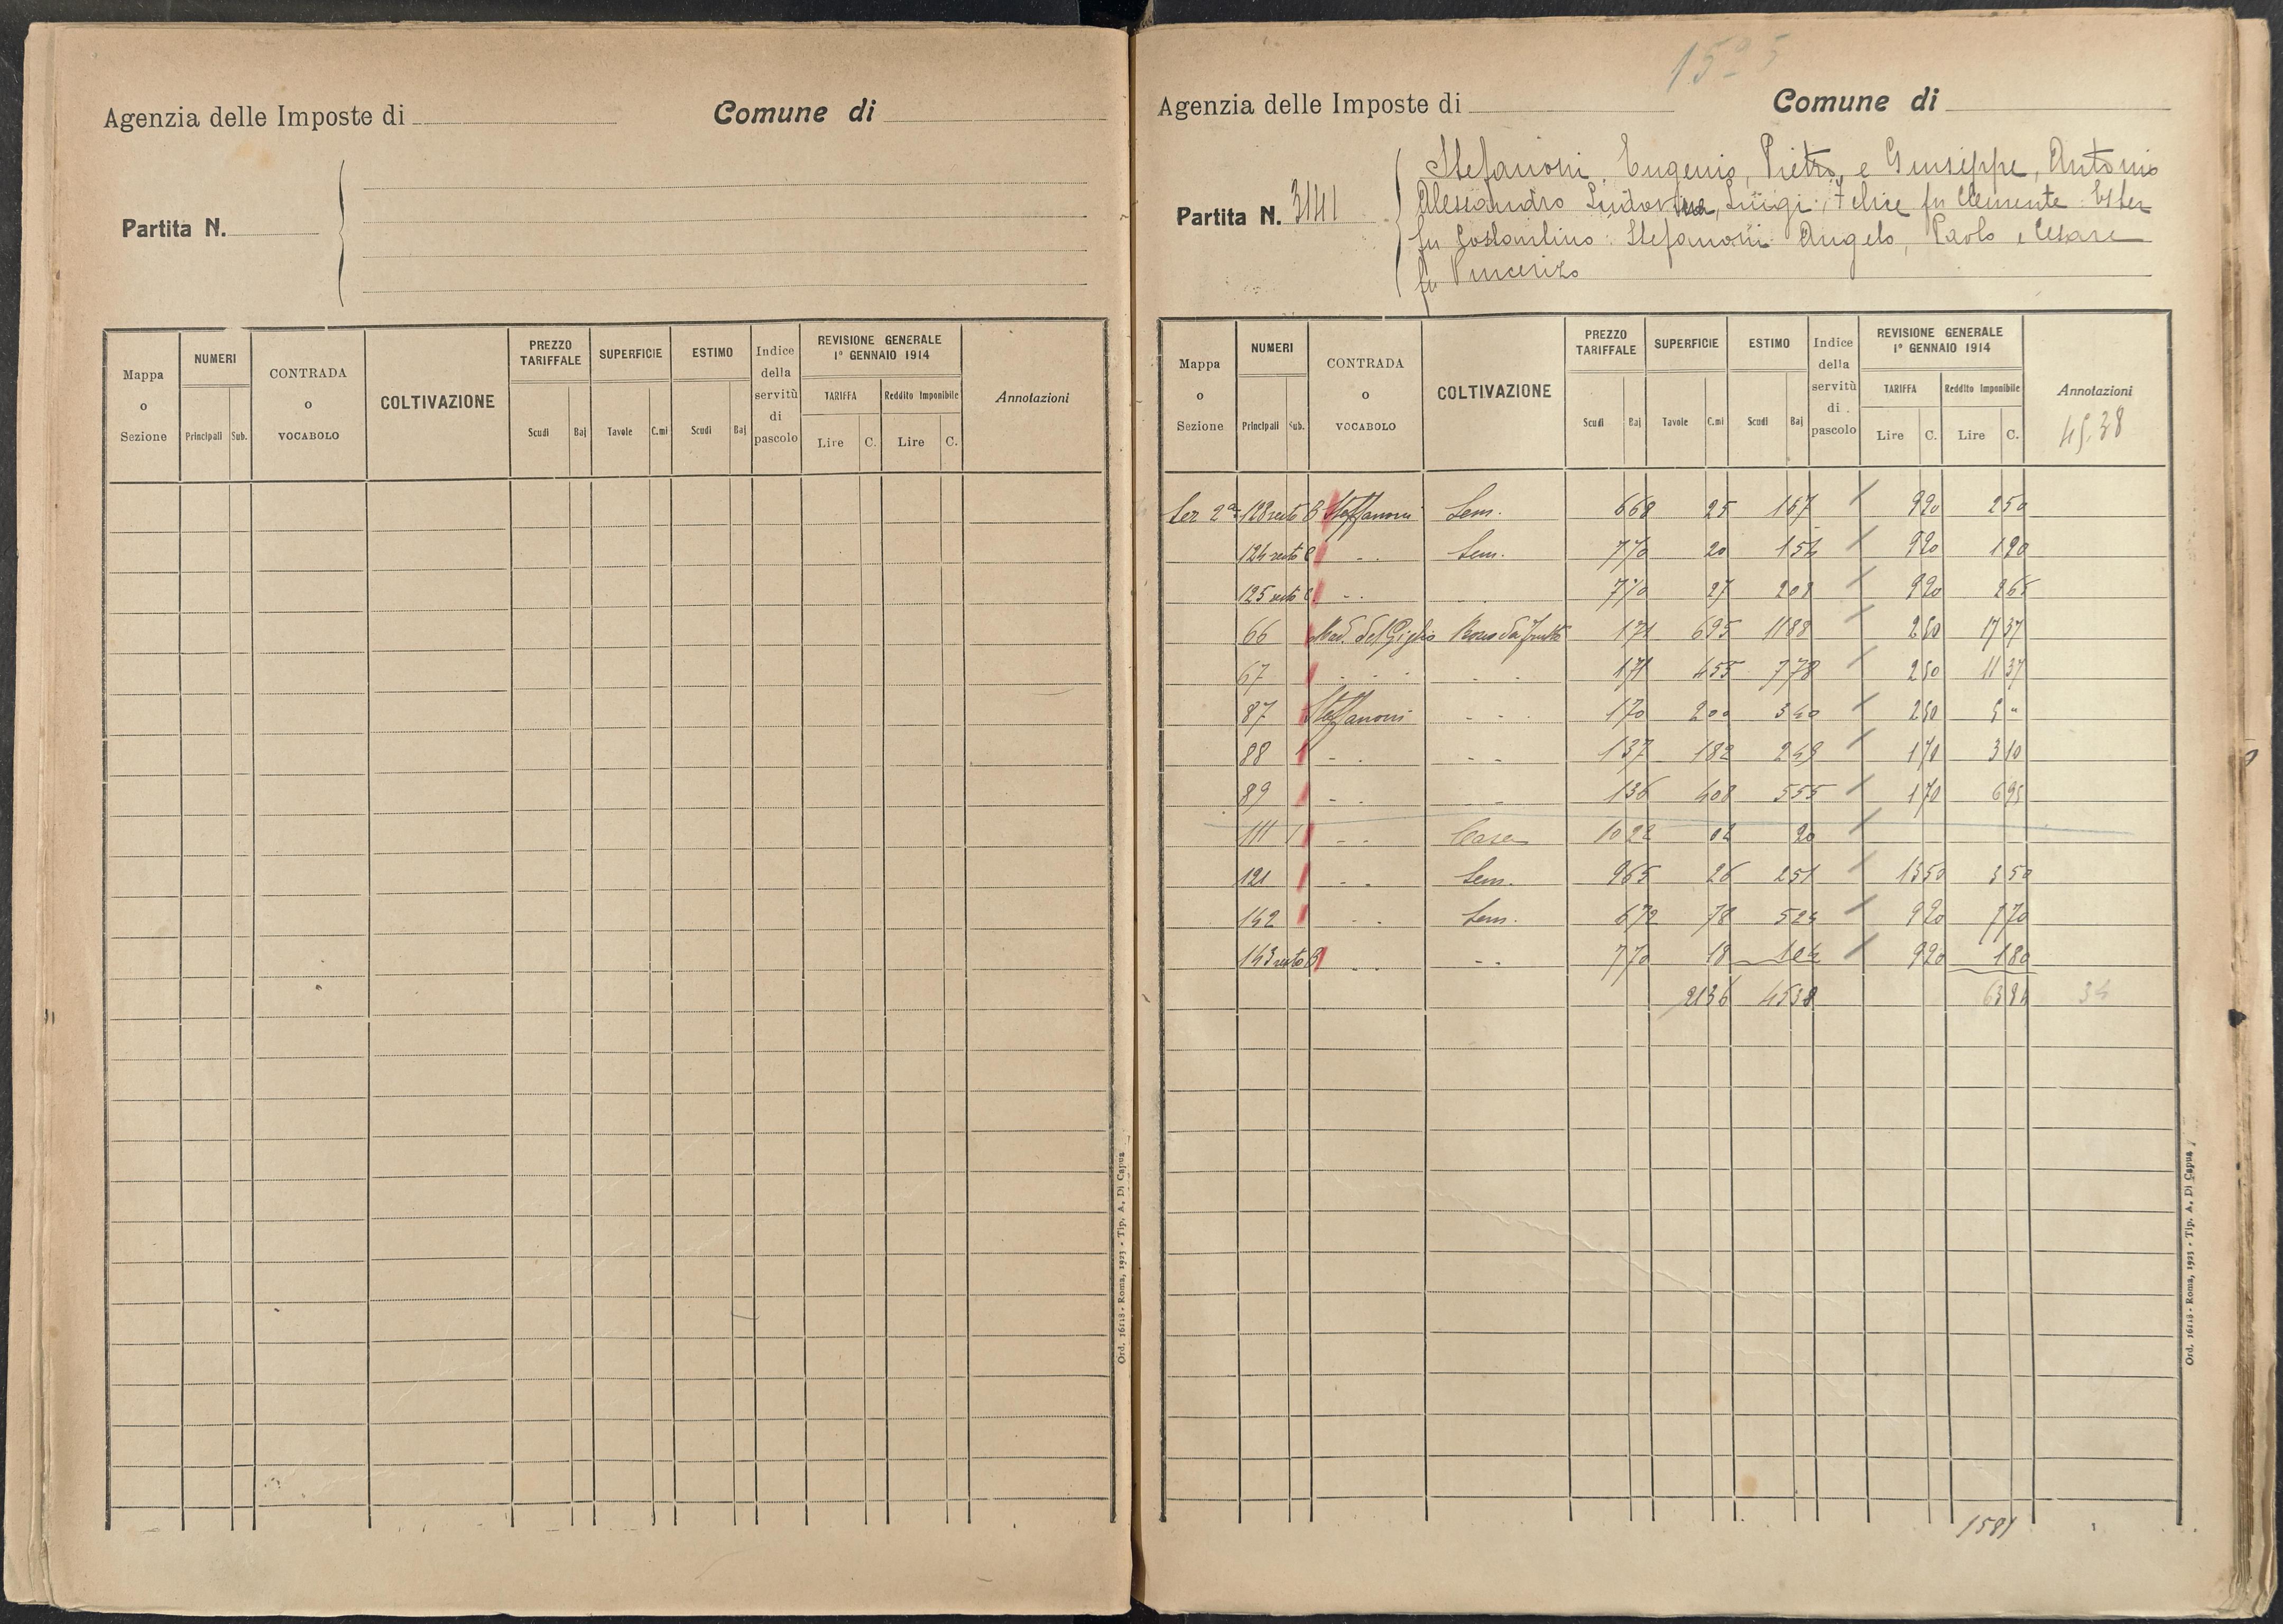 Agenzia delle Imposte di Comune di
Partita N.
Mappa o Sezione NUMERI Principali Sub. CONTRADA o VOCABOLO COLTIVAZIONE PREZZO TARIFFALE Scudi Baj SUPERFICIE Tavole C.mi ESTIMO Scudi Baj Indice della servitù di pascolo REVISIONE GENERALE 1° GENNAIO 1914 TARIFFA Lire C. Reddito Imponibile Lire C. Annotazioni
Ord. 16118 - Roma, 1923 - Tip. A. Di Capua
Agenzia delle Imposte di Comune di
Partita N. 3141
Stefanoni Eugenio, Pietro, e Giuseppe, Antonio
Alessandro Luigi, Felice fu Clemente Ester
fu Costantino: Stefanoni Angelo, Paolo e Cesare
fu Vincenzo
Mappa o Sezione NUMERI Principali Sub. CONTRADA o VOCABOLO COLTIVAZIONE PREZZO TARIFFALE Scudi Baj SUPERFICIE Tavole C.mi ESTIMO Scudi Baj Indice della servitù di pascolo REVISIONE GENERALE 1° GENNAIO 1914 TARIFFA Lire C. Reddito Imponibile Lire C. Annotazioni
45.38
2a 128 resto B Steffanoni Sem. 668 25 167 920 250
124 resto Sem. 770 20 154 920 190
125 resto 770 27 208 920 265
66 Mad. del Giglio 171 695 1188 250 1737
67 171 455 778 250 1137
87 Steffanoni 170 200 340 250 5 "
88 137 182 249 170 310
89 136 408 555 170 695
111 1 Casa 1022 02 20
121 Sem. 965 26 251 1350 350
142 Sem. 672 78 524 920 720
143 resto B 770 18 104 920 180
2136 4538 34
1581
Ord. 16118 - Roma, 1923 - Tip. A. Di Capua